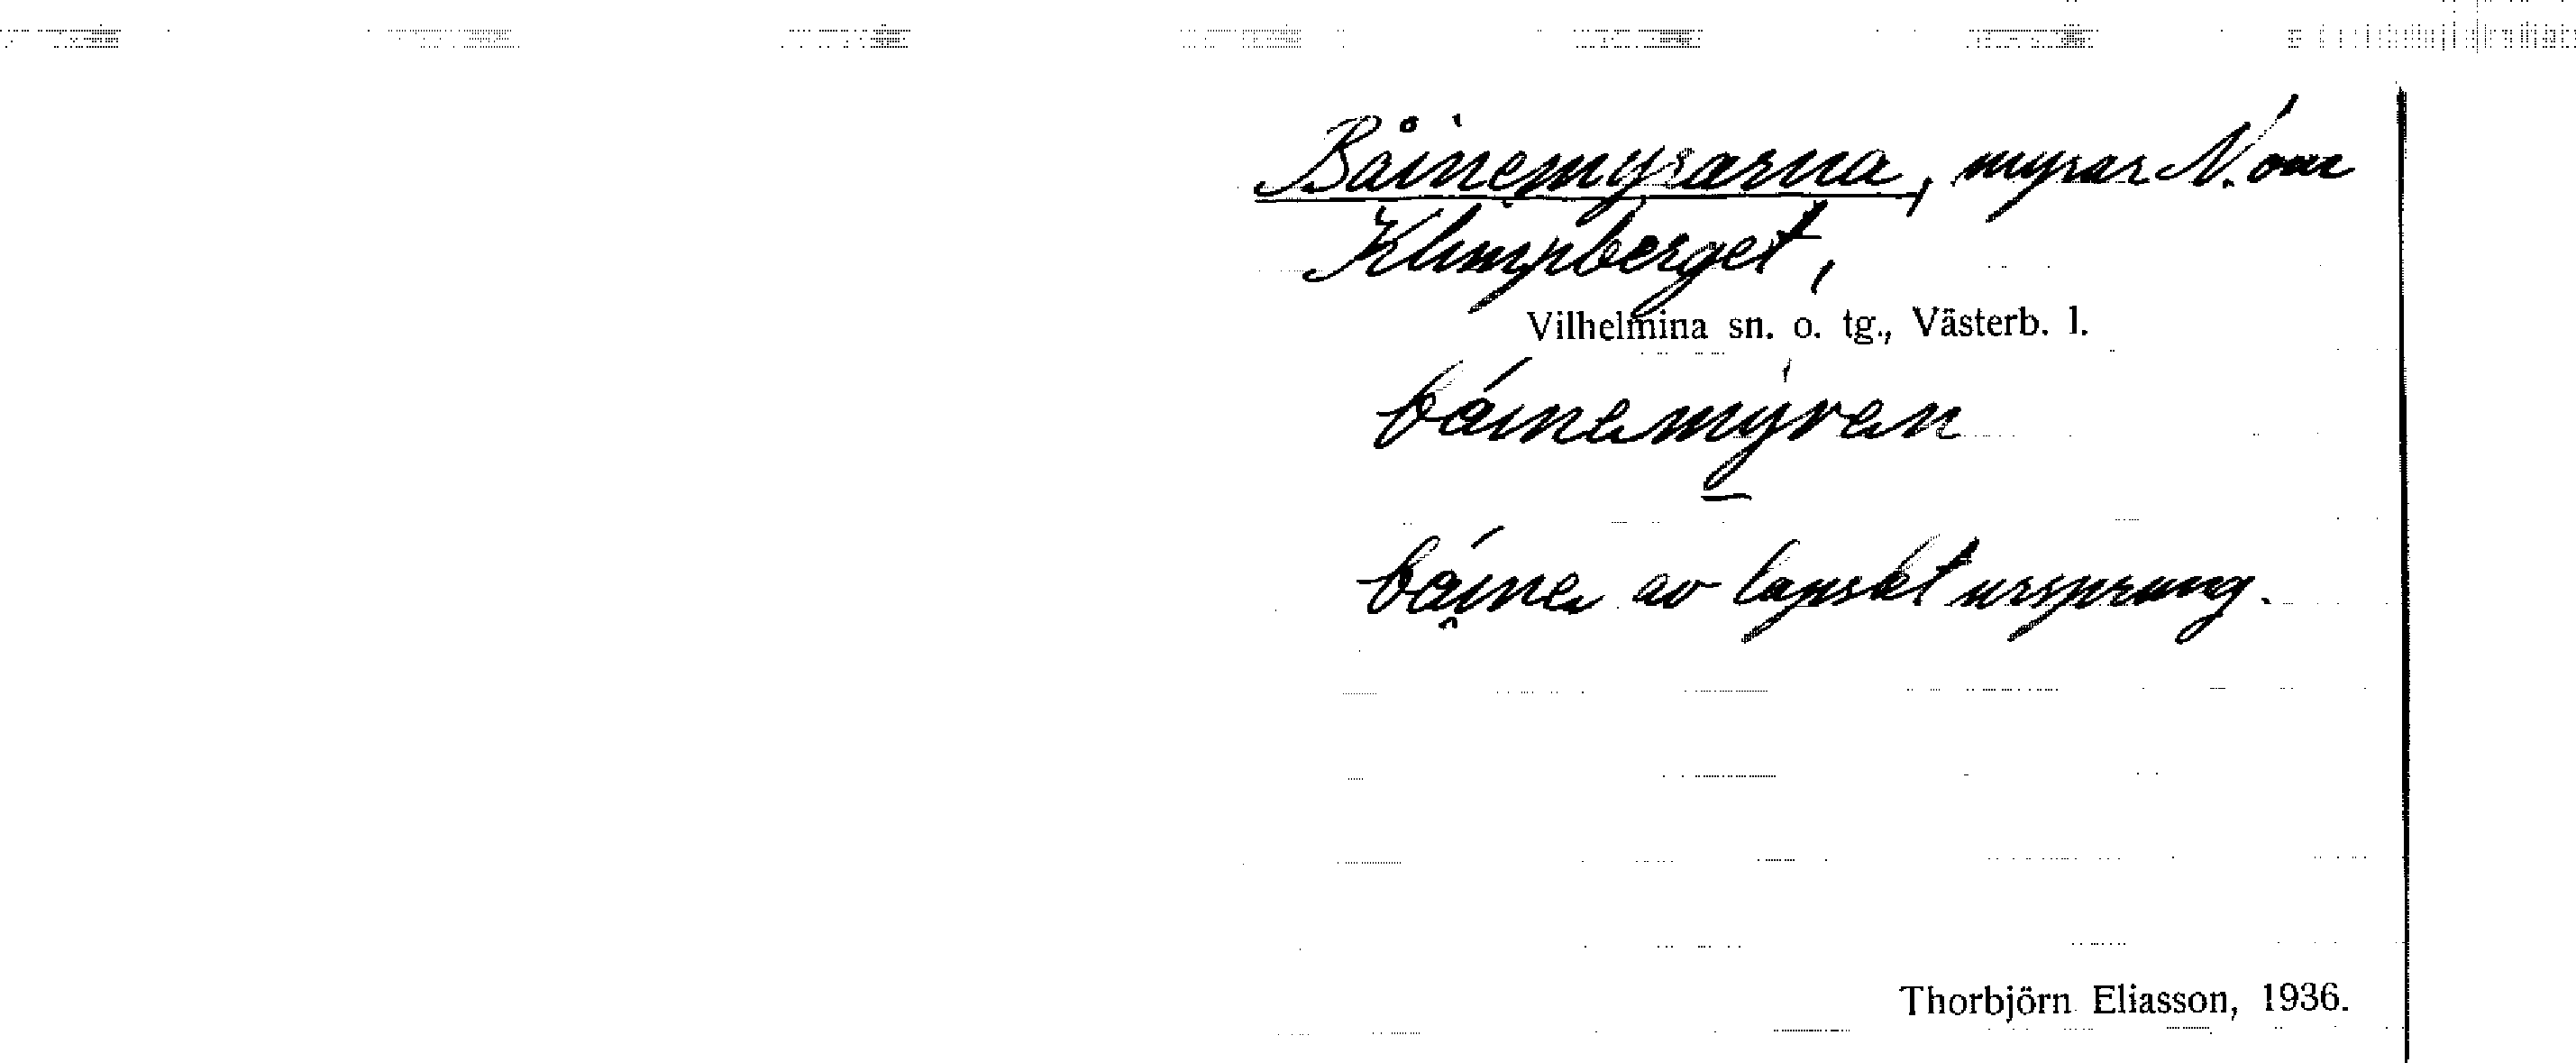 Båinemyrarna, myrar N. om
Klimpberget,
Vilhelmina sn. o. tg., Västerb. l.
båinemyran
båine av lapskt ursprung.
Thorbjörn Eliasson, 1936.